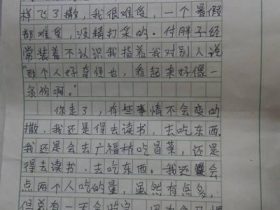 样飞了撒，我很难受，一个暑假
都难受，没精打采的。付胖子经
常装着不认识我指着我对别人说
那个人好奇怪也，看起来好像一
条狗啊。”
你走了，有些事情不会变的
撒，我还是得去读书，去吃东西
我还是会去广福桥吃冒菜，还是
得去读书，去吃东西。我还会
点两个人吃的量，虽然有包多，
但总有一个会吃完